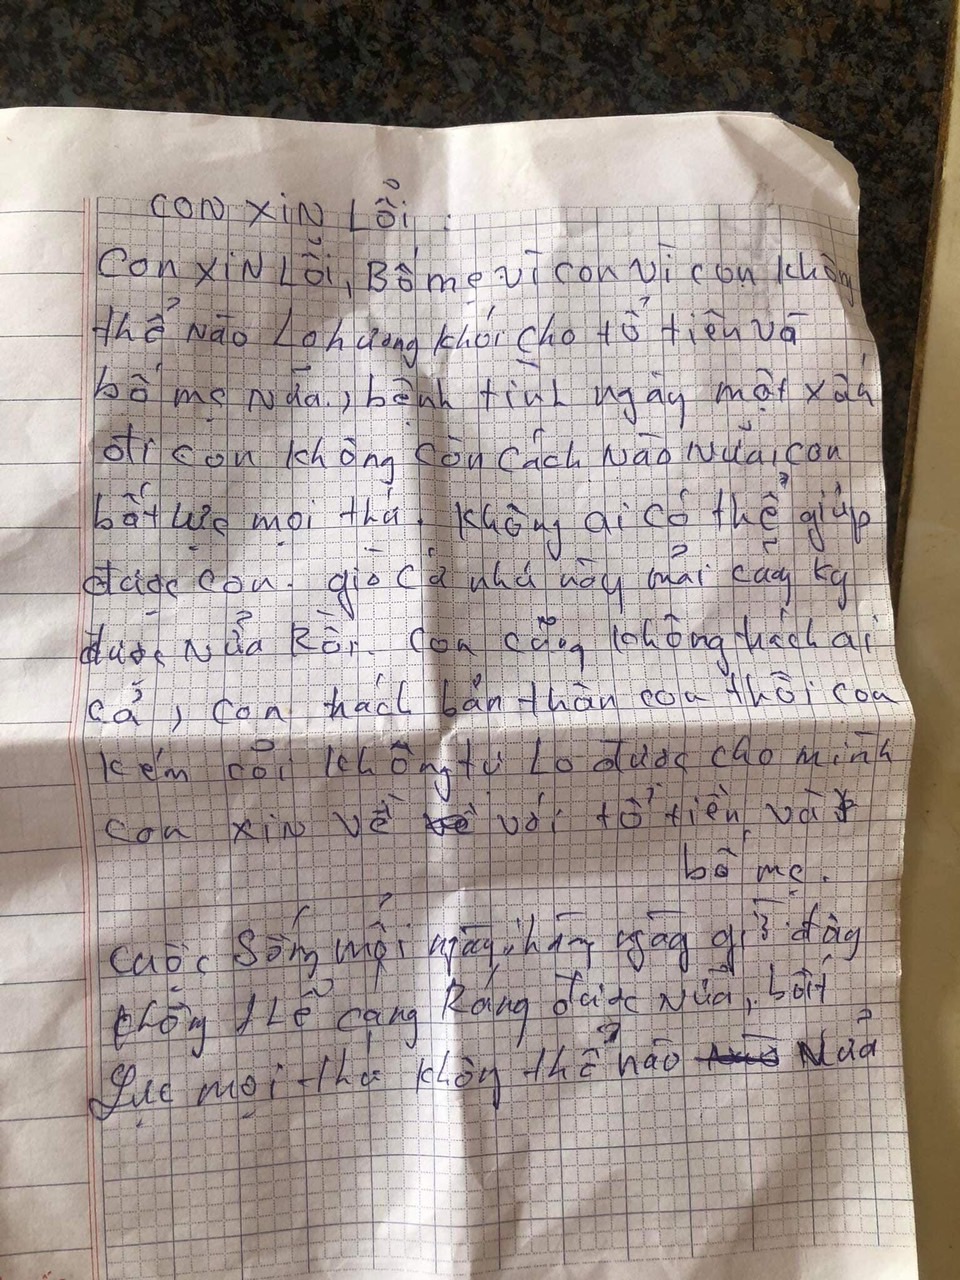 CON XIN Lổi :
Con XIN Lỗi, Bố mẹ vì con vì con không
thể nào Lo hương khói cho tổ tiên và
bố mẹ nữa, bệnh tình ngày một xấu
đi con không còn cách nào nữa, con
bất lực mọi thứ, không ai có thể giúp
được con. giờ cả nhà này mãi
được nữa Rồi. Con cũng không hách ai
cả, con hách bản thân con thôi con
kém cỏi không tự Lo được cho mình
con xin về với tổ tiên và
bố mẹ.
cuộc sống mỗi ngày, hàng ngày giờ đây
không thể cạng Ráng được nữa, bất
Lực mọi thứ không thể nào Nữa